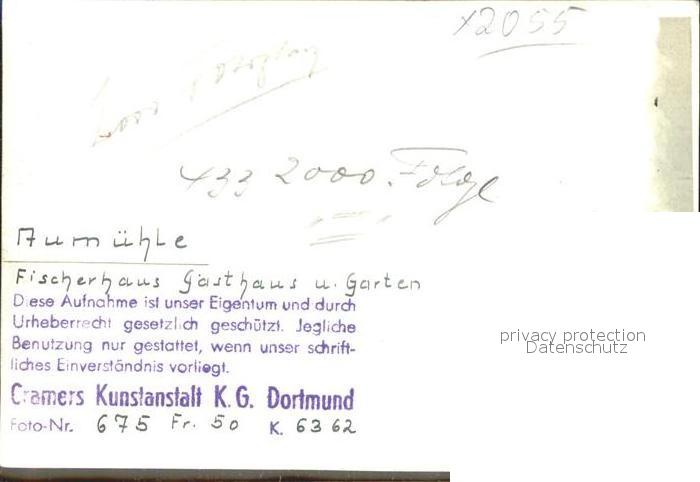 x2055
433 2000. Folge
Aumühle
Fischerhaus Gasthaus u. Garten
Diese Aufnahme ist unser Eigentum und durch
Urheberrecht gesetzlich geschützt. Jegliche
Benutzung nur gestattet, wenn unser schrift-
liches Einverständnis vorliegt.
Cramers Kunstanstalt K.G. Dortmund
Foto-Nr. 675 Fr. 50 K. 6362
privacy protection
Datenschutz